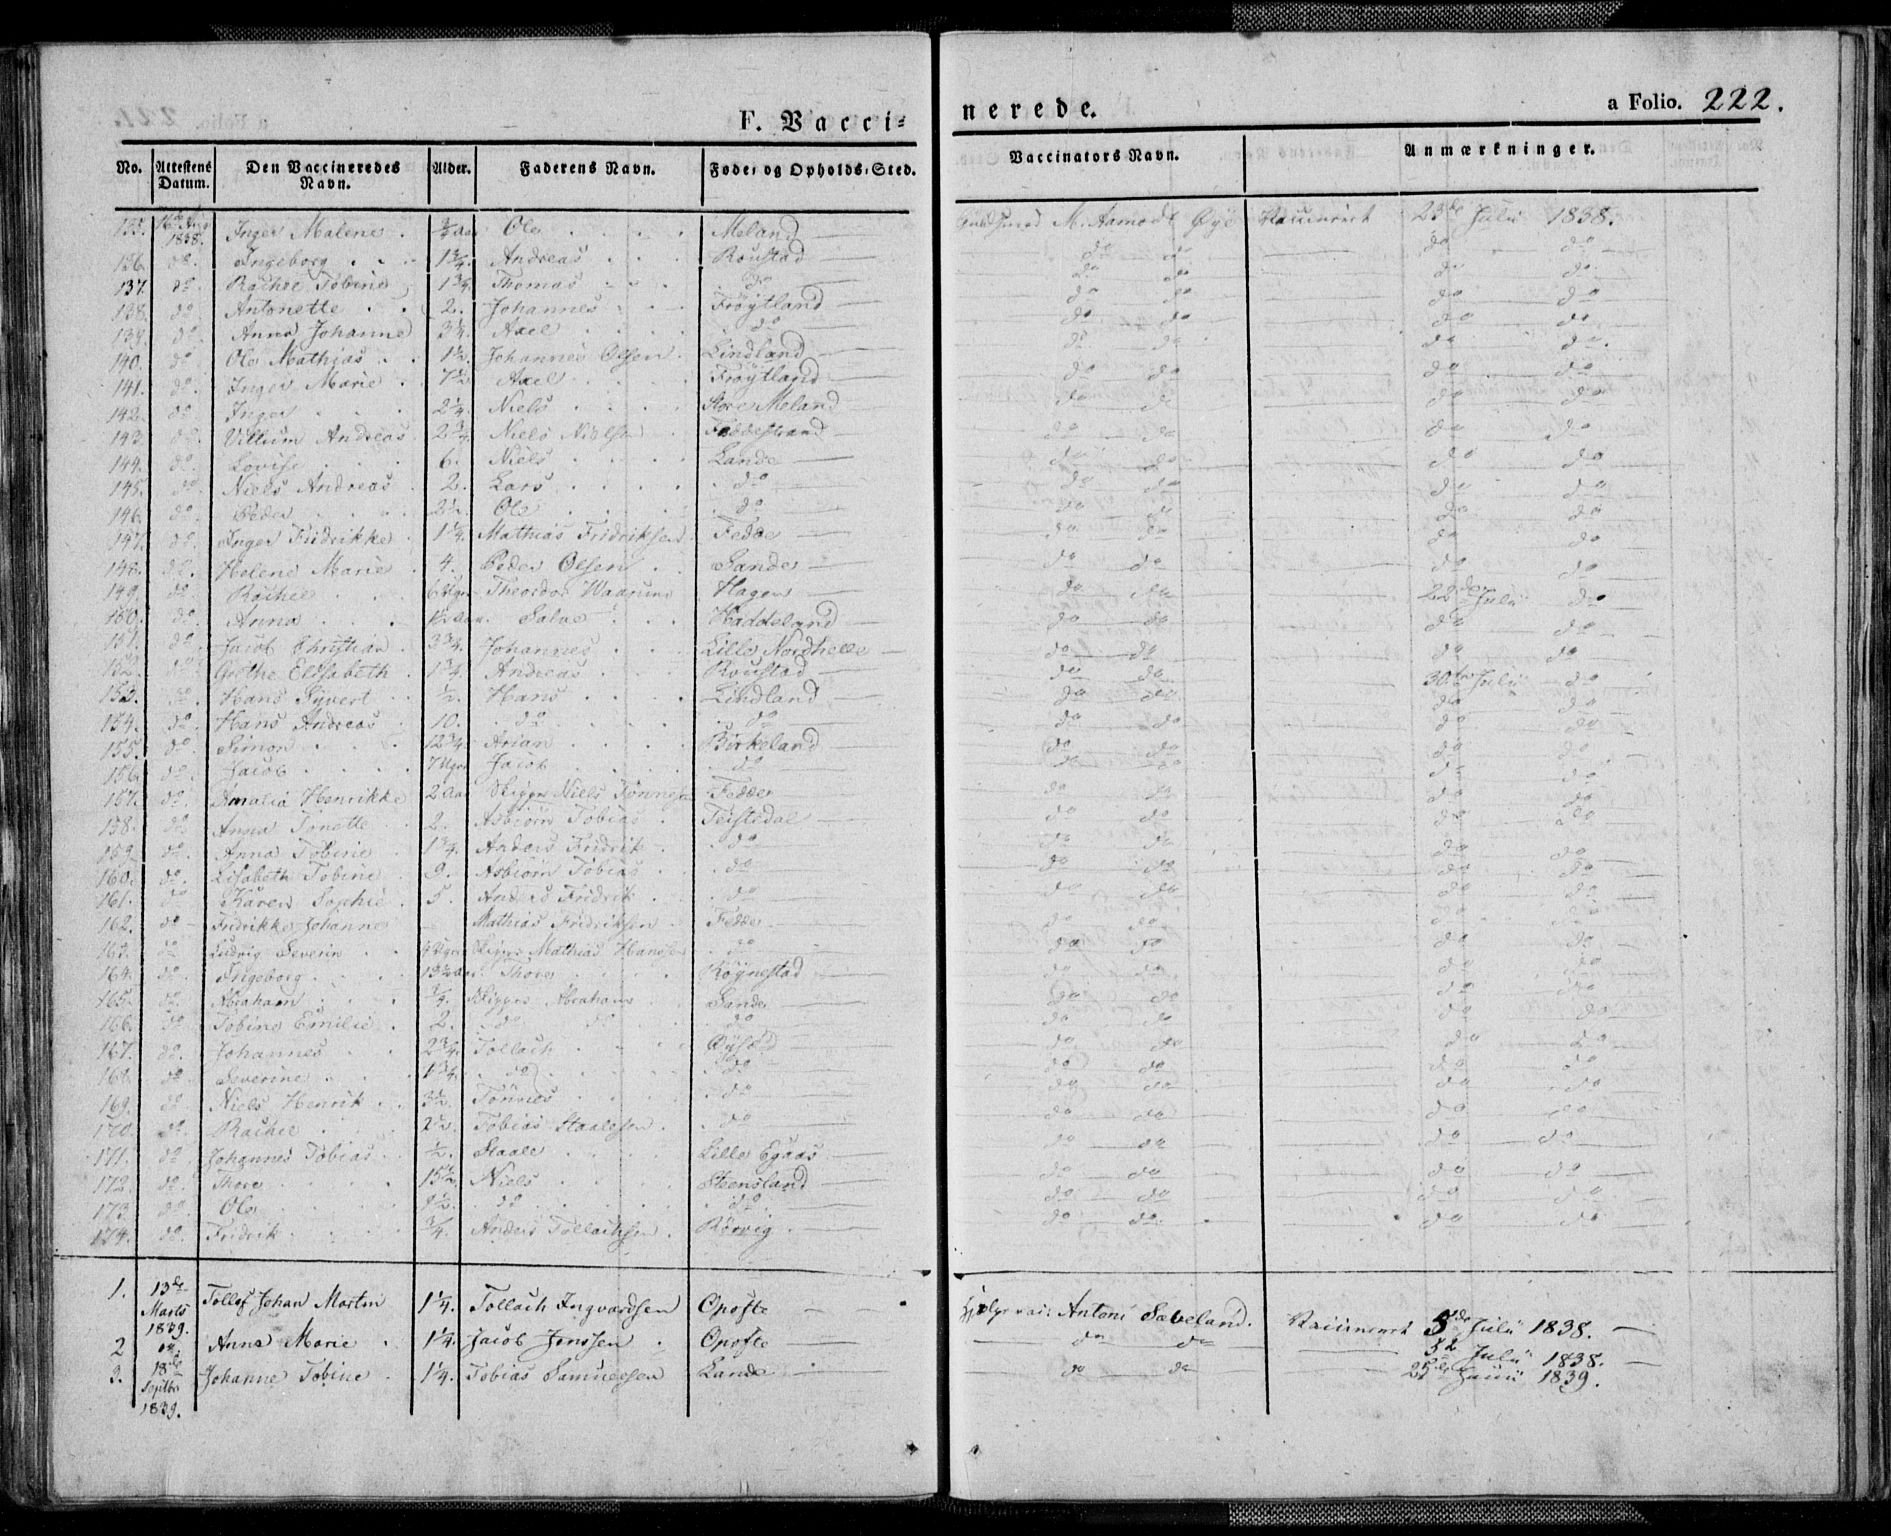 F. Vacci=nerede. a Folio. 222.
No. Attestens Datum. Den Vaccineredes Navn. Alder. Faderens Navn. Føde- og Opholds-Sted. Vaccinators Navn. Anmærkninger.
135. 16de Aug 1838. Inger Malene 3/4 Aar Ole Meland M. Aamodt Øye Vaccineret 23de Julii 1838.
136. do. Ingeborg 1 3/4. Andreas Roustad do do do do
137. do. Rachel Tobine 1 3/4 Thomas do do do do do
138. do. Antonette 2. Johannes Frøytland do do do do
139. do. Anna Johanne 3 1/4. Axel do do do do do
140. do. Ole Mathias 1 1/2. Johannes Olsen Lindland do do do do.
141. do. Inger Marie 7 1/2 Axel Frøytland do do do do
142. do. Inger 2 1/4. Niels Store Meland do do do do
143. do. Villum Andreas 2 3/4. Niels Nielsen Feddestrand do do do do
144. do. Lovise 6. Niels Lande do do do do
145. do. Niels Andreas 2. Lars do do do do do
146. do. Peder 2 1/2 Ole do do do do do
147. do. Inger Fridrikke 1 1/4. Mathias Fridriksen Fedde do do do do
148. do. Helene Marie 4. Peder Olsen Sande do do do do
149. do. Rachel 6 Uger Theodor Waarum Hagen do do 22den Julii do
150. do. Anna 1 1/2 Aar. Salve Haddeland do do do do
151. do. Jacob Christian 3 3/4. Johannes Lille Nordhelle do do do do
152. do. Grethe Elisabeth 1 3/4. Andreas Roustad do do 30te Julii do
153. do. Hans Syvert 1/2. Hans Lindland do do do do
154. do. Hans Andreas 10. do do do do do do
155. do. Simon 12 3/4. Arian Birkeland do do do do
156. do. Jacob 7 Uger Jacob do do do do do
157. do. Amalia Henrikke 2 Aar Skipper Niels Tønnesen Fedde do do do do
158. do. Anna Tonette 2. Asbiørn Tobias Teistedal do do do do
159. do. Anna Tobine 1 3/4. Anders Fridrik do do do do do
160. do. Lisabeth Tobine 9. Asbiørn Tobias do do do do do
161. do Karen Sophie 5. Anders Fridrik do do do do do
162. do Fridrikke Johanne Mathias Fridriksen Fedde do do do do
163. do Ludvig Severin Uger Skipper Mathias Hansen do do do do do
164. do. Ingeborg 13 1/2 Aar. Thore Røynestad do do do do
165. do. Abraham 3/4. Skipper Abraham Sande do do do do
166. do Tobine Emilie 2. do do do do do do do
167. do. Johannes 2 3/4. Tollach do do do do
168. do Severine 1 3/4. do do do do do do
169. do Niels Henrik 3 1/2. Tønnes do do do do do
170. do. Rachel 2 1/2. Tobias Staalesen do do do do do
171. do. Johannes Tobias 1/2. Staale Lille Egaas do do do do
172. do. Thore 15 1/2 Niels Steensland do do do do
173. do Ole 9 1/2. do do do do do do
174. do. Fridrik 3/4. Anders Tollachsen Rørvig do do do do
1. 13de Marts 1839. Tollef Johan Martin 1 1/4. Tollach Ingvardsen Opofte Antoni Saveland. Vaccineret 5de Julii 1838.
2 do Anna Marie 1 1/4. Jacob Jenssen Opofte do do Julii 1838.
3. 18de Septbr 1839. Johanne Tobine 1 1/4. Tobias Samuelsen Lande do do 25de Junii 1839.